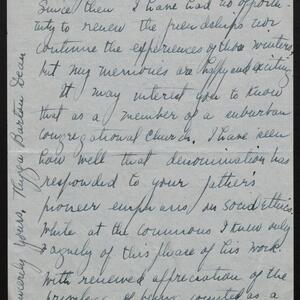 Since then I have had no opportu-
nity to renew the friendships nor
continue the experiences of those winters
but my memories are happy and exciting
It may interest you to know
that as a member of a suburban
congregational church, I have seen
how well that denomination has
responded to your father's
pioneer emphasis on social ethics.
While at the commons I knew only
vaguely of this phase of his work.
With renewed appreciation of the
privilege of being counted as a
Sincerely yours, Barton Dean